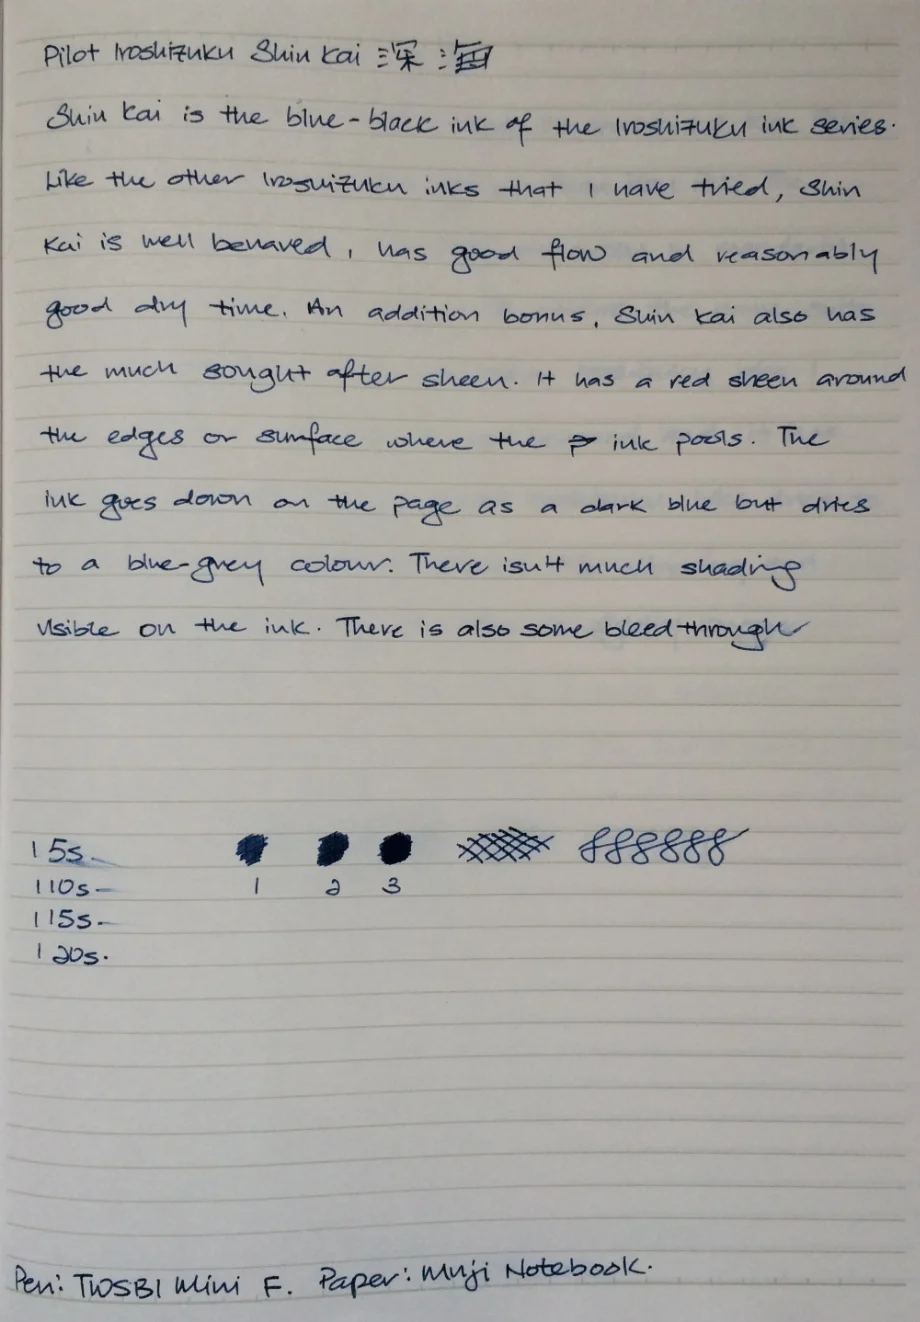 Pilot Iroshizuku Shin Kai 深海
Shin Kai is the blue-black ink of the Iroshizuku ink series.
Like the other Iroshizuku inks that I have tried, Shin
Kai is well behaved, has good flow and reasonably
good dry time. An addition bonus, Shin Kai also has
the much sought after sheen. It has a red sheen around
the edges or surface where the ink pools. The
ink goes down on the page as a dark blue but dries
to a blue-grey colour. There isn't much shading
visible on the ink. There is also some bleedthrough
15s
1 2 3
110s
115s
120s.
Pen: TWSBI Mini F. Paper: Muji Notebook.